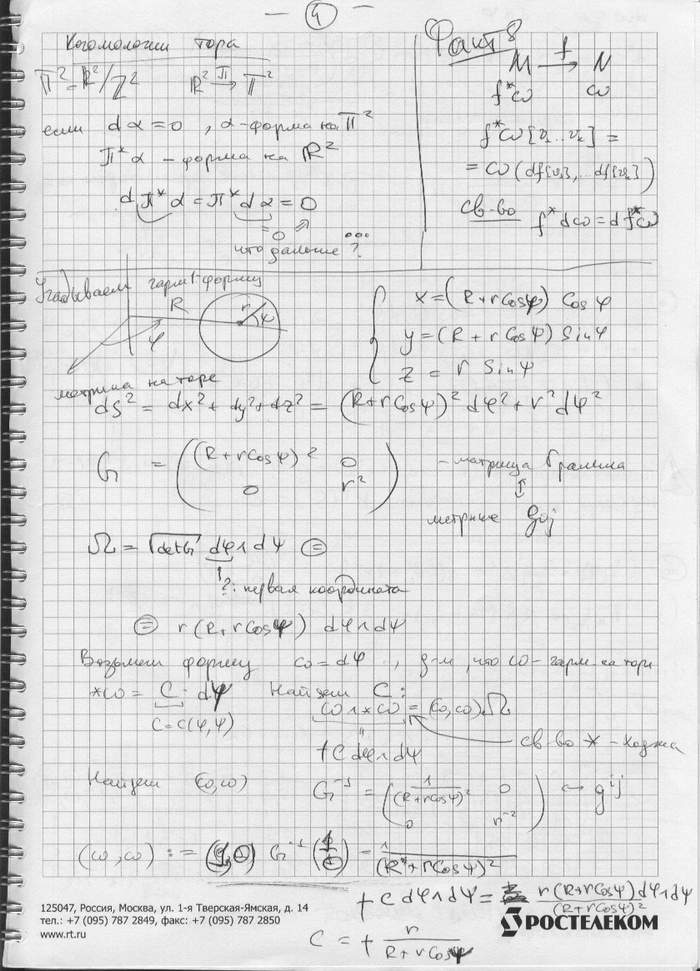 — 4 —
Когомологии тора
π² = R²/Z² R² →π π²
если dα = 0, α-форма на π²
π*α - форма на R²
dπ*α = π*dα = 0
= 0
что дальше? ...
Факт 8
M →f N
f*ω ω
f*ω[v₁...vₖ] =
= ω(df[v₁], ... df[vₖ])
св-во f*dω = df*ω
Угадываем гарм 1-форму
R r ψ
φ
x = (R + r cos ψ) cos φ
y = (R + r cos ψ) sin φ
z = r sin ψ
метрика на торе
ds² = dx² + dy² + dz² = (R + r cos ψ)² dφ² + r² dψ²
G = ( (R + r cos ψ)² 0
0 r² )
- матрица Грамма
↕
метрике gij
Ω = √det G dφ∧dψ ⊜
?: первая координата
⊜ r(R + r cos ψ) dφ∧dψ
Возьмем форму ω = dφ, д-м, что ω - гарм. на торе
*ω = C · dψ Найдем C:
C = C(φ, ψ) ω∧*ω = (ω, ω)Ω
св-во * - Ходжа
+ C dφ∧dψ
Найдем (ω, ω) G⁻¹ = ( 1/(R + r cos ψ)² 0
0 r⁻² ) ↔ gij
(ω, ω) := (1, 0) G⁻¹ (1 0) = 1/(R + r cos ψ)²
+ C dφ∧dψ = r(R + r cos ψ) dφ∧dψ/(R + r cos ψ)²
C = + r/(R + r cos ψ)
125047, Россия, Москва, ул. 1-я Тверская-Ямская, д. 14
тел.: +7 (095) 787 2849, факс: +7 (095) 787 2850
www.rt.ru
РОСТЕЛЕКОМ